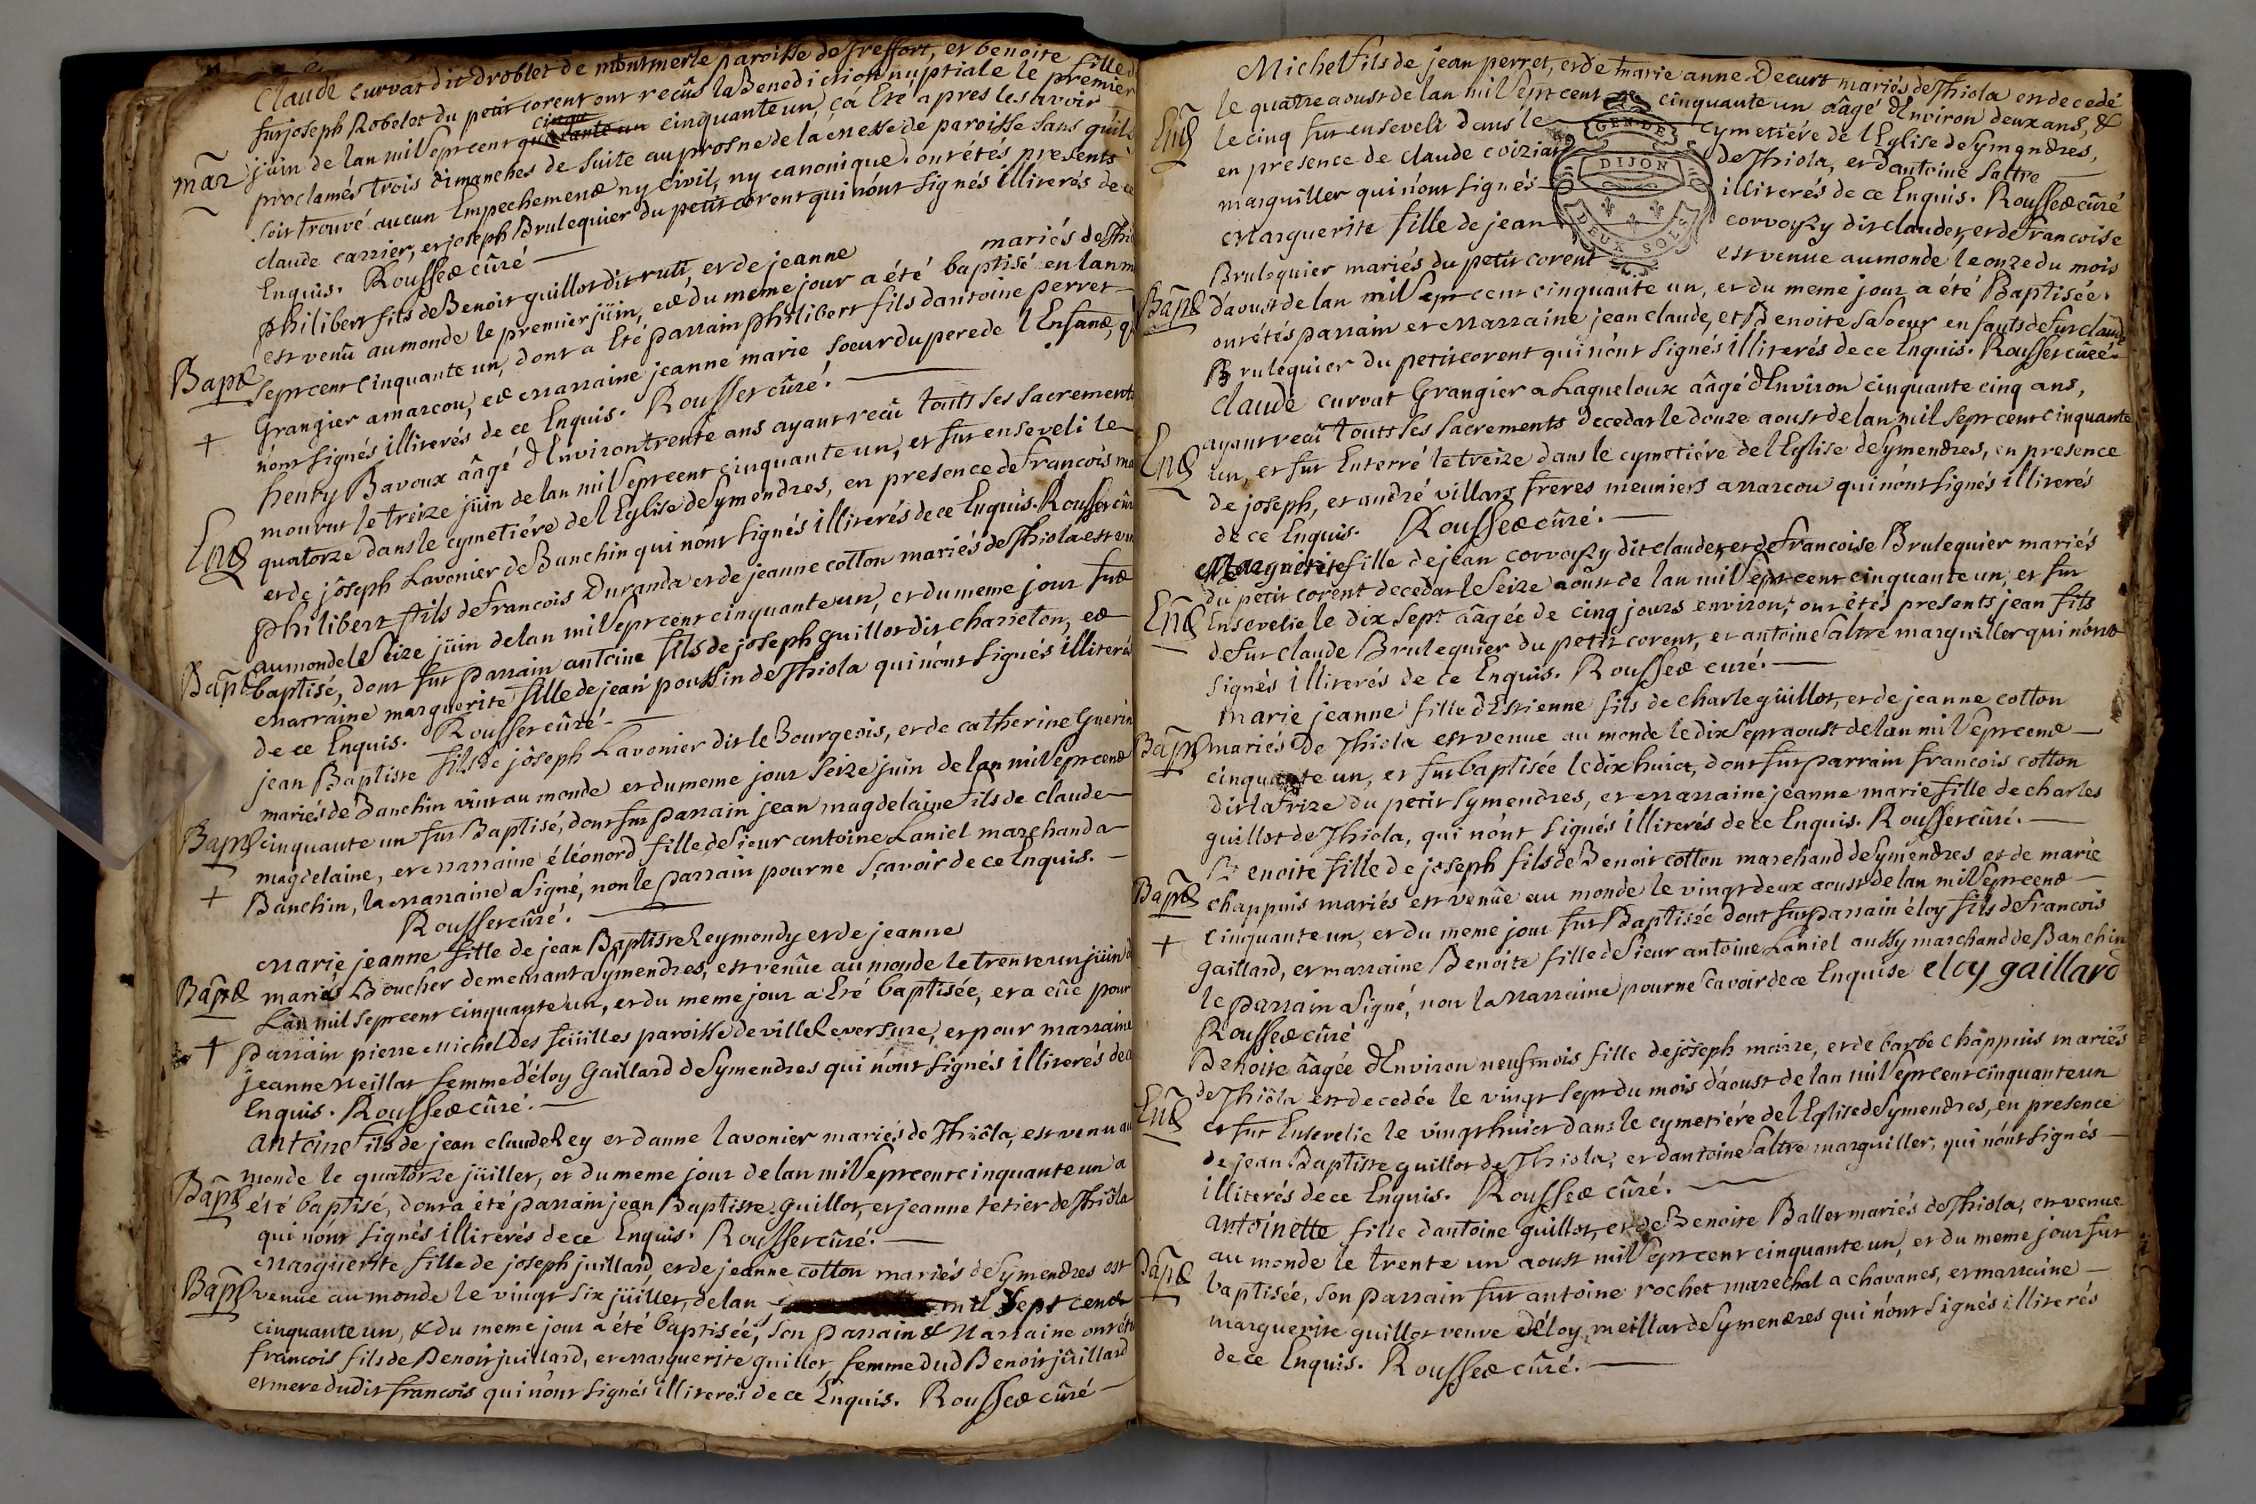 Claude Curvat dit droblet de montmerle paroisse de Treffort, et benoite fille de
fut joseph Robelet du petit corent ont reçûs la Benediction nuptiale le premier
mar juin de lan mil Sept cent quarante un cinqu cinquante un, ça Eté apres les avoir
proclamés trois dimanches de suite au prosne de la messe de paroisse sans qu'il
soit trouvé aucun Empechement ny civil, ny canonique. ont étés présents
claude carrier, et joseph Brulequier du petit corent qui n'ont signés illiterés de ce
Enquis. Rousset cûré
philibert fils de Benoit guillot dit ruti, et de jeanne mariés de Thiola
est venû au monde le premier juin, et du meme jour a été baptisé en lan mil
Bapt Sept cent cinquante un, dont a Eté parrain philibert fils dantoine perret
Grangier a marcou, et marraine jeanne marie soeur du pere de l'Enfant, qui
+ n'ont signés illiterés de ce Enquis. Rousset cûré.
henry Bavoux âagé d'Environ trente ans ayant reçû touts ses sacrements
mourut le treize juin de lan mil Sept cent cinquante un, et fut enseveli le
Ens quatorze dans le cymetiére de l'Eglise de Symendres, en presence de francois
et de jôseph Lavonier de Banchin qui n'ont signés illiterés de ce Enquis. Rousset cûré
philibert fils de francois Duranda et de jeanne cotton mariés de Thiola est venu
au monde le Seize juin de lan mil Sept cent cinquante un, et du meme jour fut
Bapt baptisé, dont fut parrain antoine fils de joseph guillot dit charreton, et
marraine marguerite fille de jean poussin de Thiola qui n'ont signés illiterés
de ce Enquis. Rousset cûré.
jean Baptiste fils de jôseph Lavonier dit le Bourgeois, et de catherine Guerin
mariés de Banchin vint au monde et du meme jour seize juin de lan mil Sept cent
Bapt cinquante un fut Baptisé, dont fut parrain jean magdelaine fils de claude
magdelaine, et marraine éléonord fille de Sieur antoine Laniel marchand a
+ Banchin, la marraine a signé, non le parrain pour ne sçavoir de ce Enquis.
Rousset cûré.
Marie jeanne fille de jean Baptiste Reymondy et de jeanne
Bapt mariés Boucher demeurant a Symendres, est venûe au monde le trente un juin de
Lan mil Sept cent cinquante un, et du meme jour a Eté baptisée, et a eûe pour
+ parrain pierre Michel des feüilles paroisse de villeReversure, et pour marraine
jeanne meillat femme d'éloy Gaillard de Symendres qui n'ont signés illiterés de ce
Enquis. Rousset cûré.
Antoine fils de jean claude Rey et danne lavonier mariés de Thiôla, est venu au
monde le quatorze jüillet, et du meme jour de lan mil Sept cent cinquante un a
Bapt été baptisé, dont a été parrain jean Baptiste guillot, et jeanne tetier de Thiôla
qui n'ont signés illiterés de ce Enquis. Rousset cûré.
Marguerite fille de joseph juillard et de jeanne cotton mariés de Symendres est
Bapt venue au monde le vingt six jüillet, de lan mil Sept cent
cinquante un, & du meme jour a été baptisée, son parrain & Marraine ont étés
francois fils de Benoit juillard, et marguerite guillot femme dud Benoit jüillard
et mere dudit francois qui n'ont signés illiterés de ce Enquis. Rousset cûré
Michel fils de jean perret, et de marie anne Decurt mariés de Thiola est decedé
le quatre aoust de lan mil Sept cent cinquante un âagé d'Environ deux ans, &
Ens le cinq fut enseveli dans le cymetiére de l'Eglise de Symendres,
en presence de claude coiziat de Thiola, et dantoine Saltre
marguiller qui n'ont signés illiterés de ce Enquis. Rousset cûré
GEN. DE
DIJON
DEUX SOLS
Marguerite fille de jean corvoisy dit claudet, et de francoise
Brulequier mariés du petit corent est venue au monde le onze du mois
Bapt daoust de lan mil Sept cent cinquante un, et du meme jour a été Baptisée.
ont étés parrain et marraine jean claude, et Benoite sa soeur enfants de fut claude
Brulequier du petit corent qui n'ont signés illiterés de ce Enquis. Rousset cûré.
Claude curvat Grangier a Laqueloux âagé d'Environ cinquante cinq ans,
ayant reçû touts ses sacrements decedat le douze aoust de lan mil sept cent cinquante
Ens un, et fut Enterré le treize dans le cymetiére de l'Eglise de Symendres, en presence
de joseph, et andré villars freres meuniers a marcou qui n'ont signés illiterés
de ce Enquis. Rousset cûré.
Marguerite fille de jean corvoisy dit claudet, et de francoise Brulequier mariés
du petit corent decedat le seize aôust de lan mil Sept cent cinquante un, et fut
Ens Ensevelie le dix sept âagée de cinq jours environ, ont étés presents jean fils
de fut claude Brulequier du petit corent, et antoine saltre marguiller qui n'ont
signés illiterés de ce Enquis. Rousset curé.
Marie jeanne fille d'Estienne fils de charle güillot, et de jeanne cotton
Bapt mariés de Thiola est venue au monde le dix sept aoust de lan mil Sept cent
cinquante un, et fut baptisée le dix huict, dont fut parrain francois cotton
dit la frize du petit Symendres, et marraine jeanne marie fille de charles
guillot de Thiola, qui n'ont signés illiterés de ce Enquis. Rousset cûré.
Benoite fille de joseph fils de Benoit cotton marchand de Symendres et de marie
Bapt chappuis mariés est venûe au monde le vingt deux aoust de lan mil Sept cent
cinquante un, et du meme jour fut Baptisée dont fut parrain éloy fils de francois
+ gaillard, et marraine Benoite fille de Sieur antoine Laniel aussy marchand de Banchin
le parrain a signé, non la marraine pour ne scavoir de ce Enquise eloy gaillard
Rousset cûré
Benoite âagée d'Environ neuf mois fille de jôseph maire, et de barbe chappuis mariés
de Thiôla est decedée le vingt sept du mois daoust de lan mil Sept cent cinquante un
Ens et fut Ensevelie le vingt huict dans le cymetiére de l'Eglise de Symendres, en presence
de jean Baptiste guillot de Thiola, et dantoine saltre marguiller, qui n'ont signés
illiterés de ce Enquis. Rousset cûré.
antoinette fille dantoine guillot, et de Benoite Baller mariés de Thiola, est venue
Bapt au monde le trente un aoust mil Sept cent cinquante un, et du meme jour fut
baptisée, son parrain fut antoine rochet marechal a chavanes, et marraine
marguerite guillot veuve d'éloy meillat de Symendres qui n'ont signés illiterés
de ce Enquis. Rousset cûré.